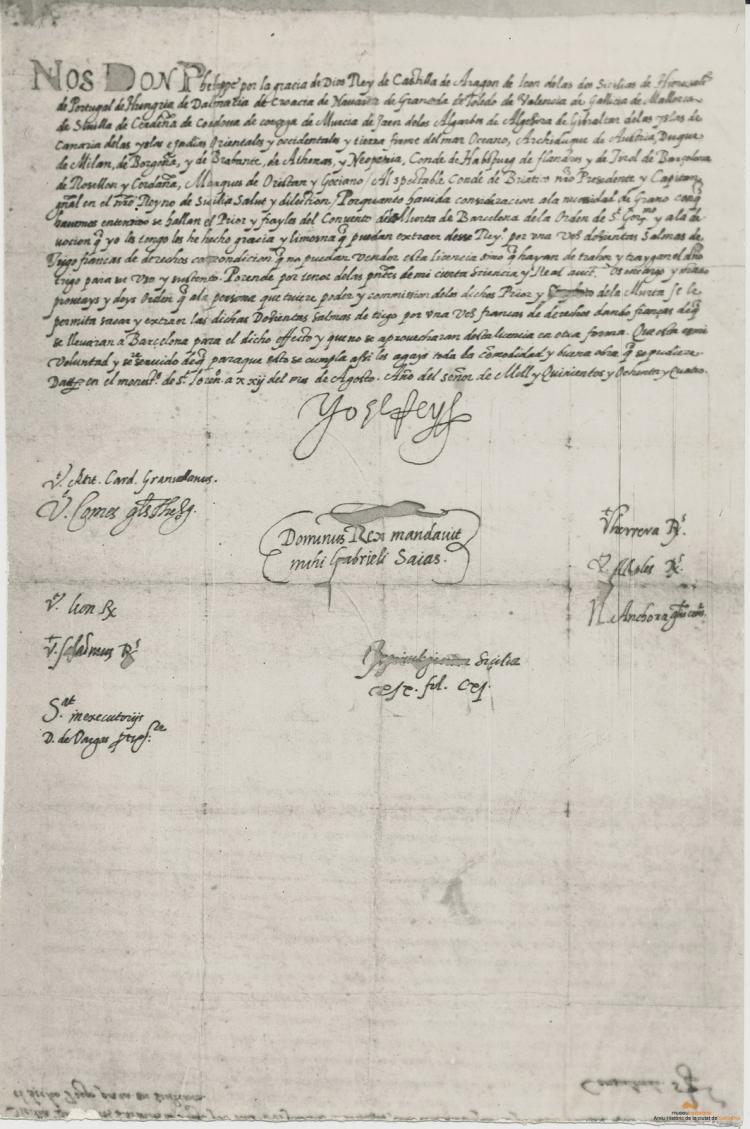 NOS DON Phelippe por la gracia de Dios Rey de Castilla de Aragon de leon delas dos Sicilias de Hierusalē
de Portugal de Hungria de Dalmatia de Croacia de Nauarra de Granada de Toledo de Valencia de Gallicia de Mallorca
de Seuilla de Cerdeña de Cordoua de corcega de Murcia de Jaen delos Algarbes de Algezira de Gibraltar delas yslas de
Canaria delas yslas e Jndias Orientales y occidentales y tierra firme del mar Oceano, Archiduque de Austria, Duque
de Milan, de Borgoña, y de Brabante, de Athenas, y Neopatria, Conde de Habspurg de flandres y de Tirol de Barçelona
de Rosellon y Cerdaña, Marques de Oristan y Goçiano / Al spectable Conde de Briatico nr̄o Presidente y Capitan
gñal en el nr̄o Reyno de Sicilia Salud y dilection / Porquanto hauida consideracion ala necessidad de Grano conq̄
hauemos entendido se hallan el Prior y frayles del Conuento dela Murta de Barcelona dela Orden de Sᵗ Gerᵐᵒ y ala de
uocion q̄ yo les tengo les he hecho gracia y limosna q̄ puedan extraer desse Reyᵒ por vna vez dozientas Salmas de
Trigo francas de derechos con condicion q̄ no puedan vender esta licencia sino q̄ hayan de traher y traygan el dho
trigo para su vso y sustento. Porende por tenor delas pñtes de mi cierta sciencia y Real auctᵗ. Os encargo y mando
proueays y deys orden q̄ ala persona que tuuiere poder y commission delos dichos Prior y dela Murta se le
permita sacar y extraer las dichas Dozientas salmas de trigo por vna vez francas de derechos dando fianças deq̄
se lleuaran a Barcelona para el dicho effecto y que no se aprouecharan desta licencia en otra forma. Que esta es mi
voluntad y seruicio deq̄ paraque esto se cumpla assi les agays toda la comodidad y buena obra q̄ se pudiere
Datt en el monestᵒ de Sᵗ Lorenᵒ a xxij del mes de Agosto. Año del señor de Mill y Quinientos y Ochenta y Quatro.
Yo el Rey
Vᵗ. Ant. Card. Granuellanus.
Vᵗ. Comes gñlis Thes.
Dominus Rex mandauit
mihi Gabrieli Saias.
Vᵗ herrera Rˢ.
Vᵗ. Rˢ.
Vᵗ. leon Rˢ
Vᵗ. Rˢ
Sicilia
S.ᵃᵗ in executorijs
D. de Vargas
el dicho Trigo para su sustento
museu
Arxiu Històric de la Ciutat de Barcelona